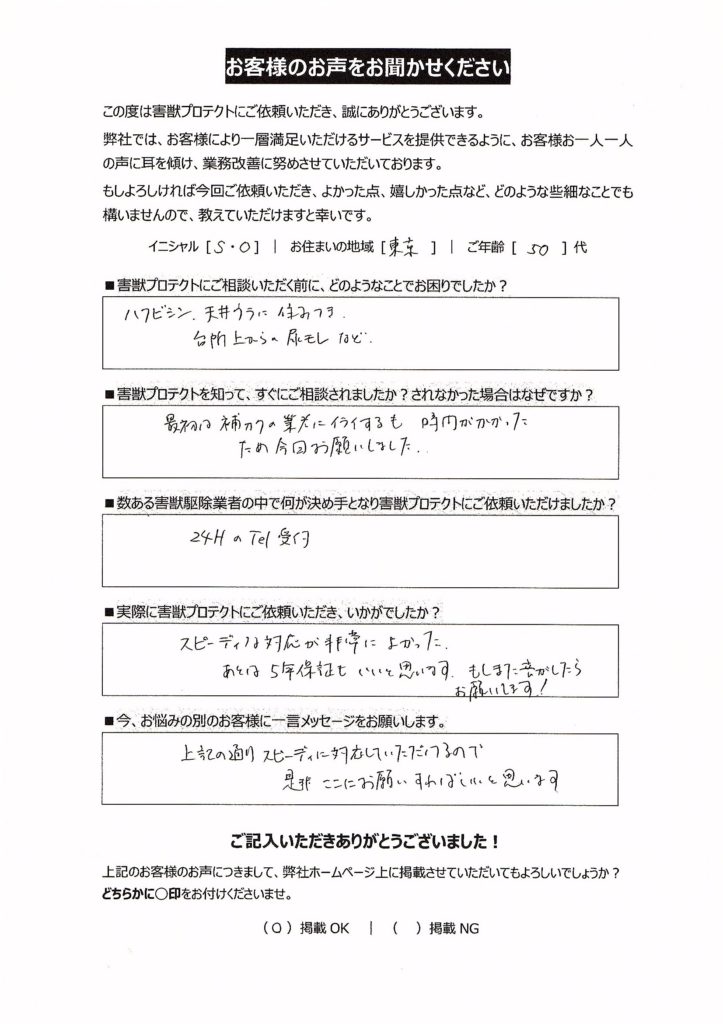 お客様のお声をお聞かせください
この度は害獣プロテクトにご依頼いただき、誠にありがとうございます。
弊社では、お客様により一層満足いただけるサービスを提供できるように、お客様お一人一人
の声に耳を傾け、業務改善に努めさせていただいております。
もしよろしければ今回ご依頼いただき、よかった点、嬉しかった点など、どのような些細なことでも
構いませんので、教えていただけますと幸いです。
イニシャル [ S・O ] | お住まいの地域 [ 東京 ] | ご年齢 [ 50 ] 代
■害獣プロテクトにご相談いただく前に、どのようなことでお困りでしたか？
ハクビシン、天井ウラに住みつき、
台所上からの尿モレなど、
■害獣プロテクトを知って、すぐにご相談されましたか？されなかった場合はなぜですか？
最初は補カクの業者にイライするも 時間がかかった
ため今回お願いしました。
■数ある害獣駆除業者の中で何が決め手となり害獣プロテクトにご依頼いただけましたか？
24HのTel受付
■実際に害獣プロテクトにご依頼いただき、いかがでしたか？
スピーディな対応が非常によかった。
あとは5年保証もいいと思います。もしまた音がしたら
お願いします！
■今、お悩みの別のお客様に一言メッセージをお願いします。
上記の通りスピーディに対応していただけるので
是非ここにお願いすればいいと思います
ご記入いただきありがとうございました！
上記のお客様のお声につきまして、弊社ホームページ上に掲載させていただいてもよろしいでしょうか？
どちらかに〇印をお付けくださいませ。
（O）掲載 OK | （ ）掲載 NG